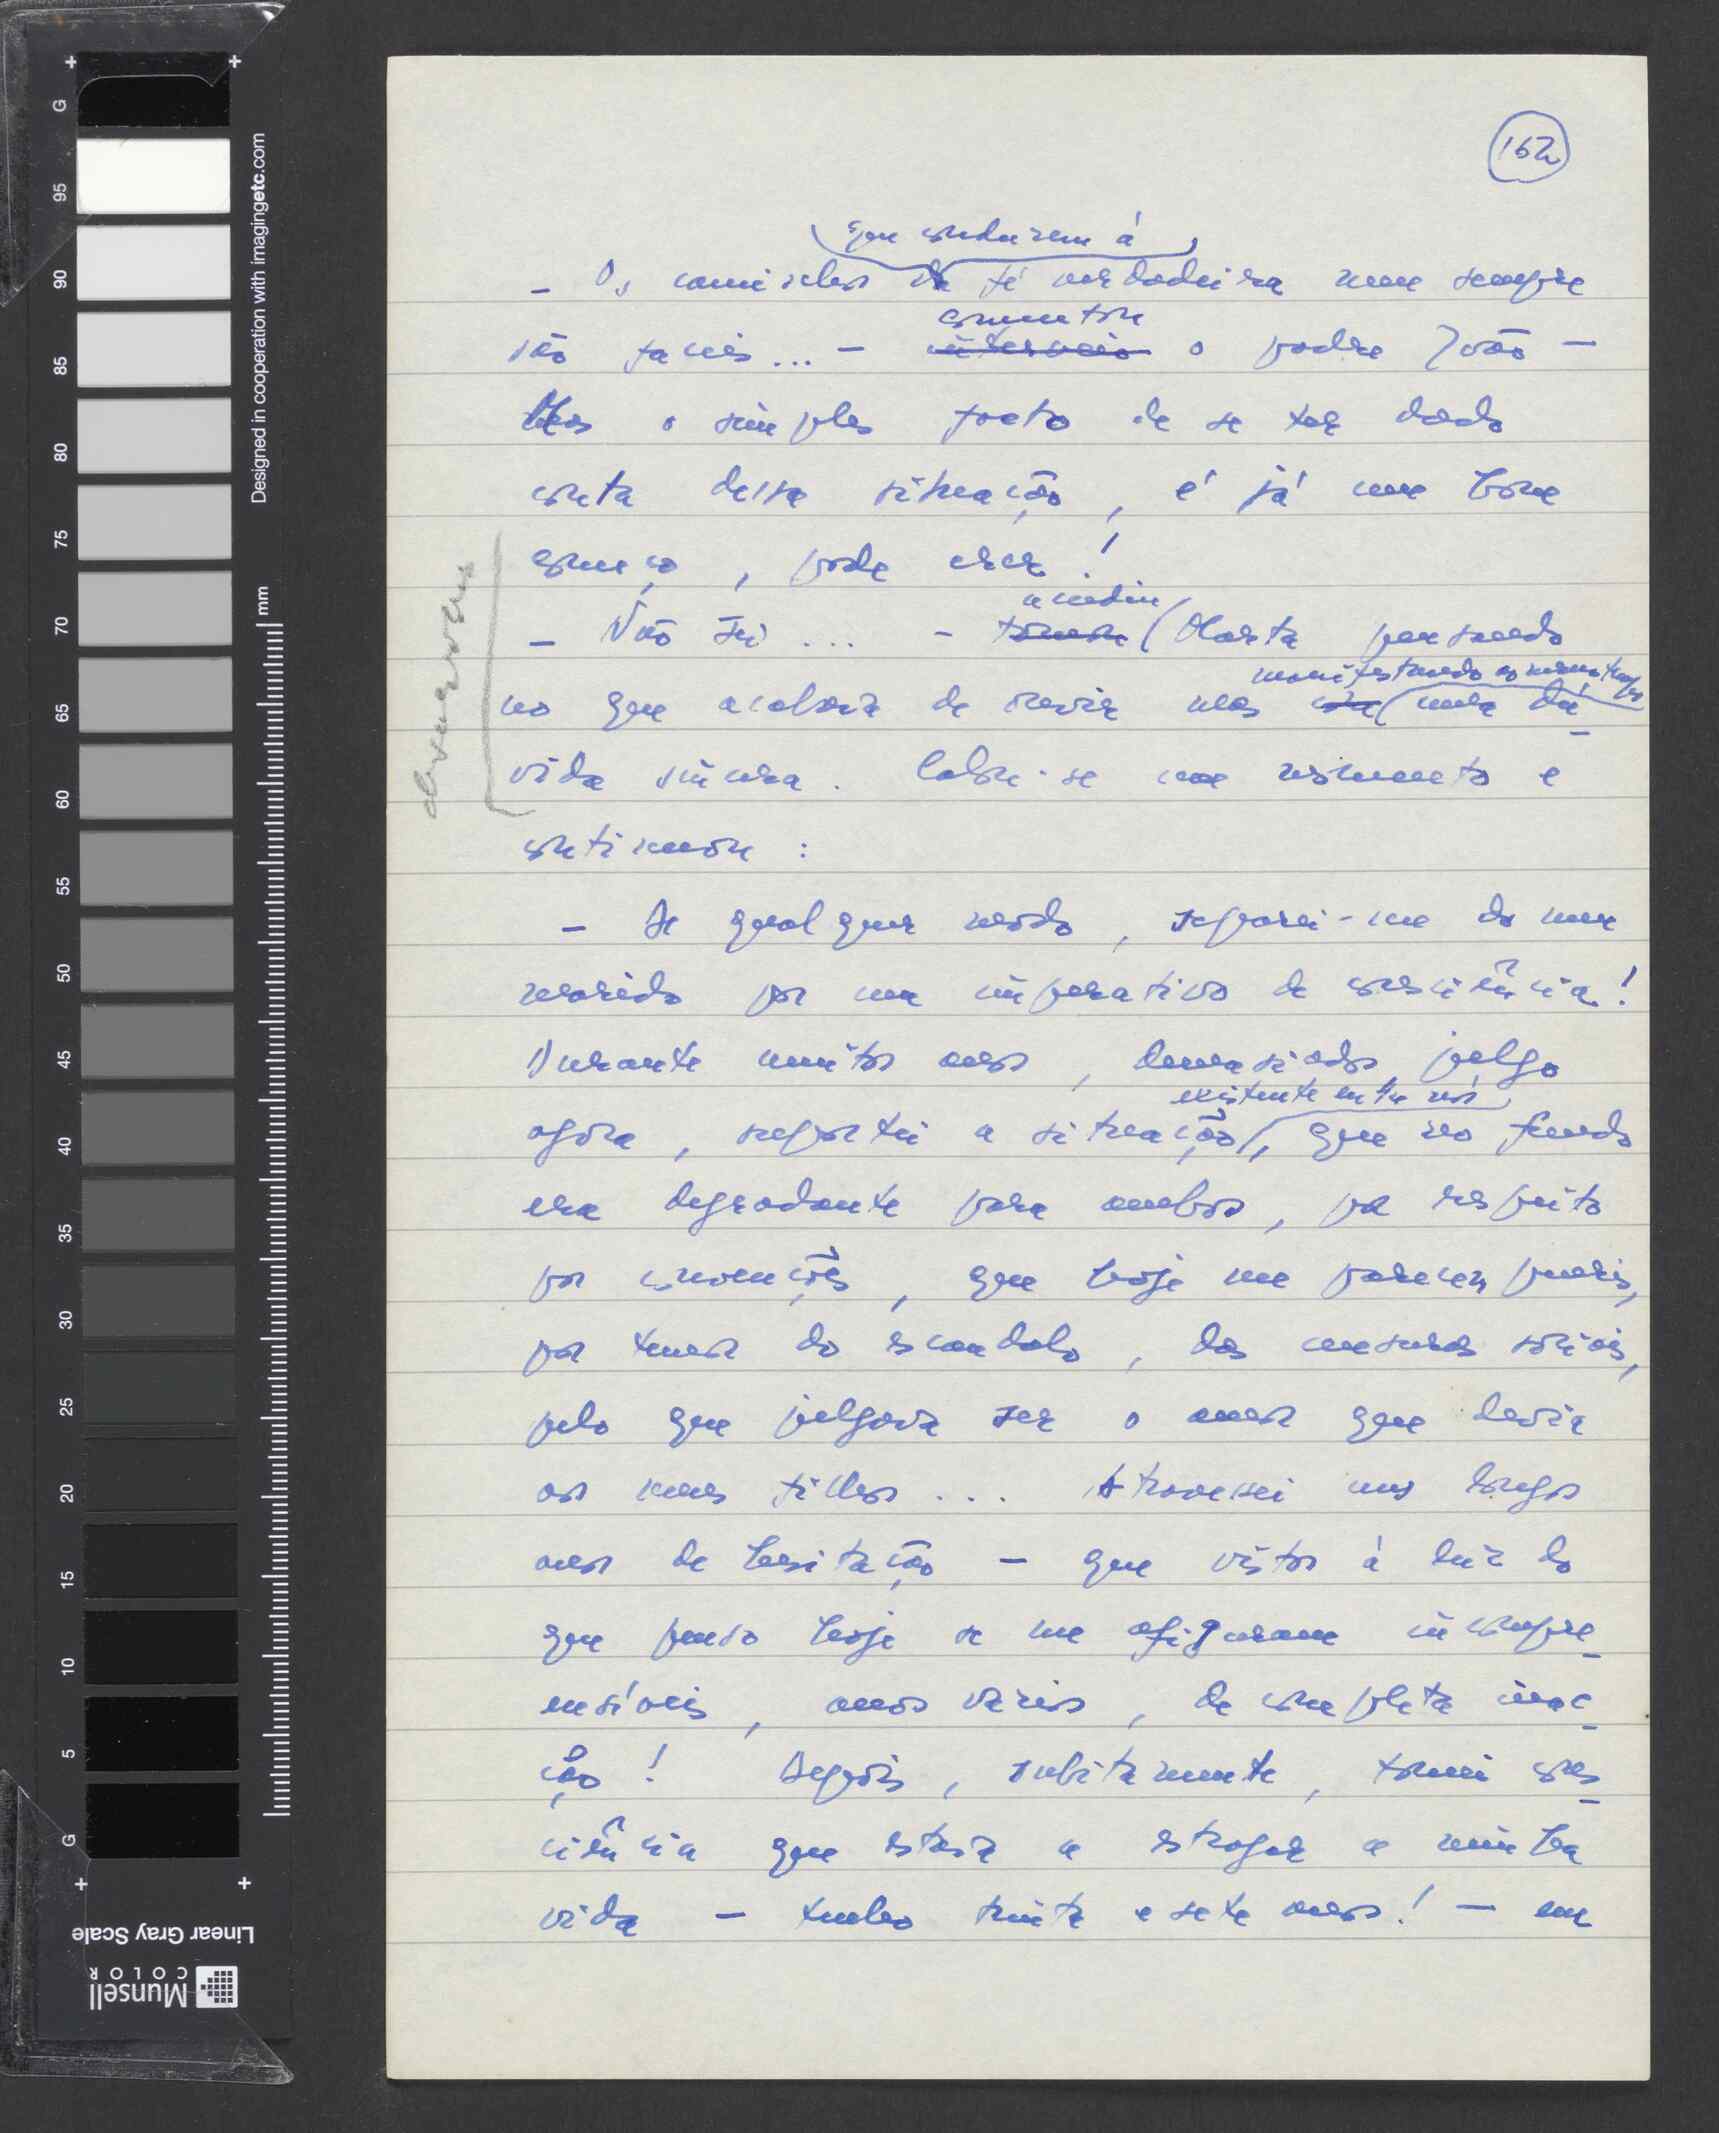 162
que conduzem à
- Os caminhos da fé verdadeira nem sempre
comentou
são faceis... - interveio o padre João -
Mas o simples facto de se ter dado
conta dessa situação, é já um bom
começo, pode crer!
acudiu
- Não sei ... - tornou Marta pensando
manifestando ao mesmo tempo
no que acabava de ouvir mas uma dú-
vida sincera. Calou-se um momento e
continuou :
- De qualquer modo, separei-me do meu
marido por um imperativo de consciência!
Durante muitos anos, demasiados, julgo
existente entre nós
agora, suportei a situação, que no fundo
era degradante para ambos, por respeito
por convenções, que hoje me parecem pueris,
por temor do escandalo, das censuras sociais,
pelo que julgava ser o amor que devia
aos meus filhos ... Atravessei uns longos
anos de hesitação - que vistos à luz do
que penso hoje se me afiguram incompre-
ensíveis, anos vazios, de completa inac-
ção! Depois, subitamente, tomei cons-
ciência que estava a estragar a minha
vida - tenho trinta e sete anos! - em
Designed in cooperation with imagingetc.com
mm
G
95
90
85
80
75
70
65
60
55
50
45
40
35
30
25
20
15
10
5
G
Linear Gray Scale
Munsell
COLOR